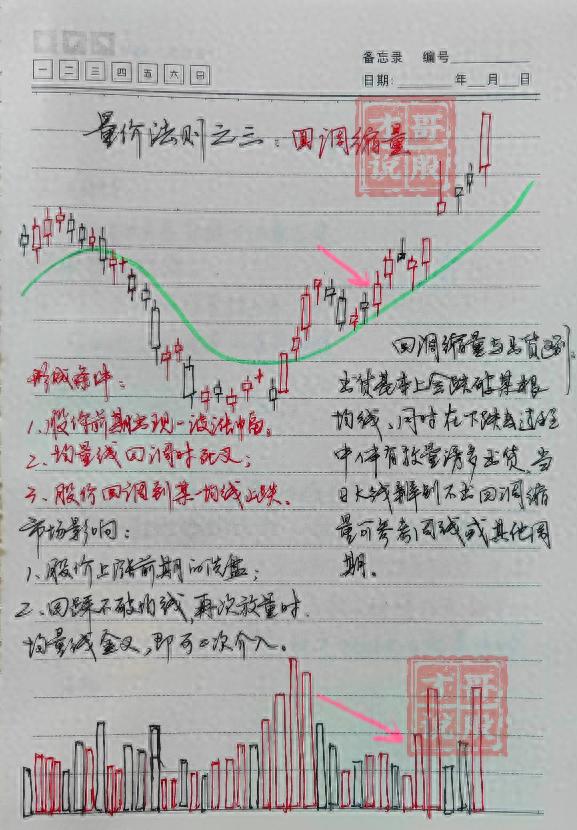 备忘录 编号
一 二 三 四 五 六 日
日期: 年 月 日
量价法则之三：回调缩量
才哥
说股
回调缩量与出货区别
形成条件：
1、股价前期出现一波涨幅；
2、均量线回调时死叉；
3、股价回调到某一均线止跌．
市场影响：
1、股价上涨前期的洗盘；
2、回踩不破均线，再次放量时．
均量线金叉，即可二次介入。
出货基本上会跌破某根
均线、同时在下跌过程
中伴有放量诱多出货、当
日K线辨别不出回调缩
量可参考周线或其他周
期。
才哥
说股